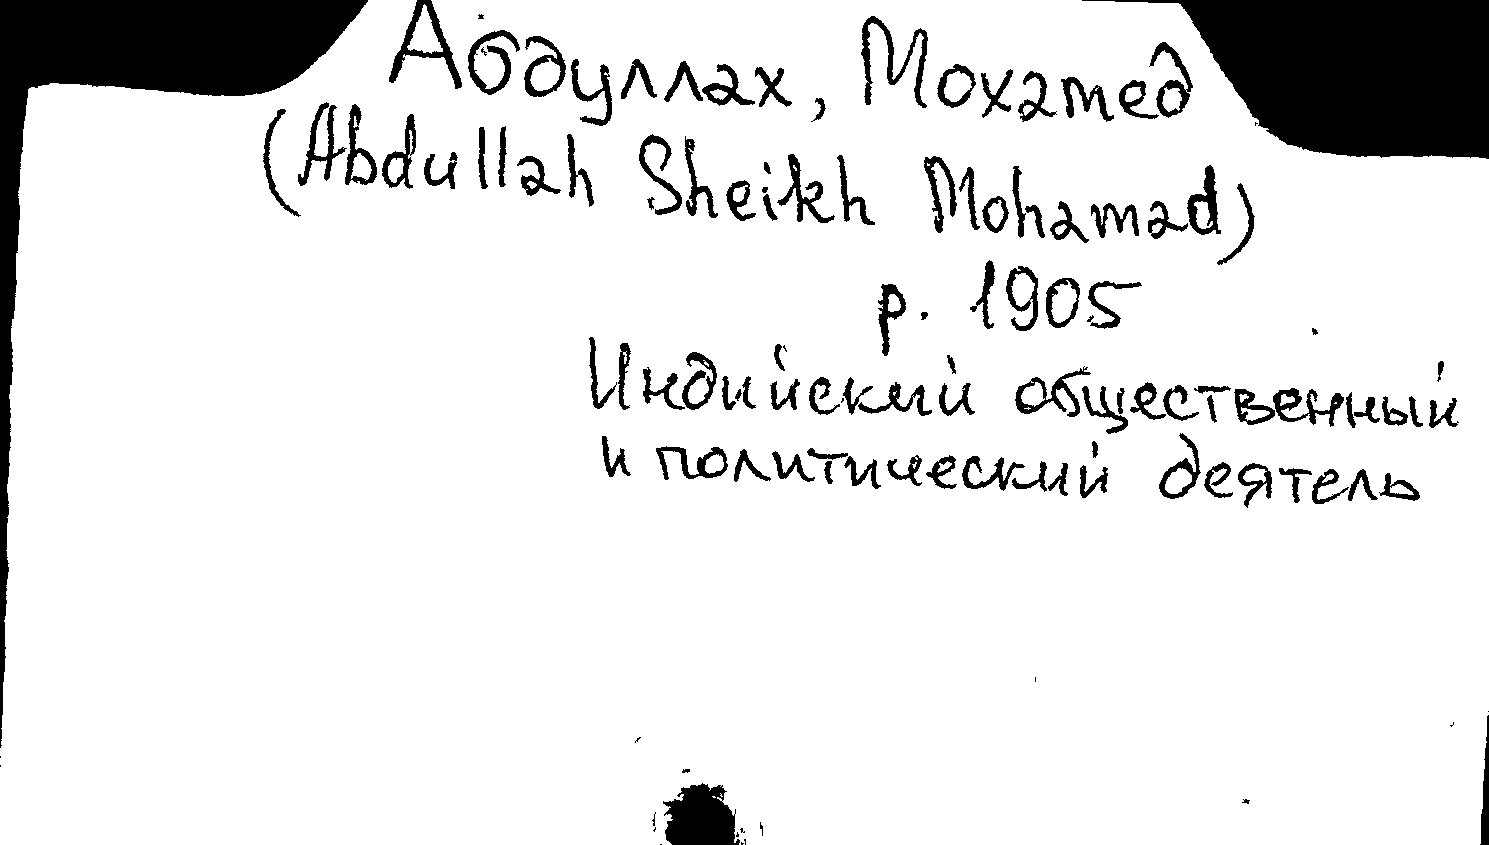 Абдуллах, Мохамед
(Abdullah Sheikh Mohamad)
р. 1905
Индийский общественный
и политический деятель